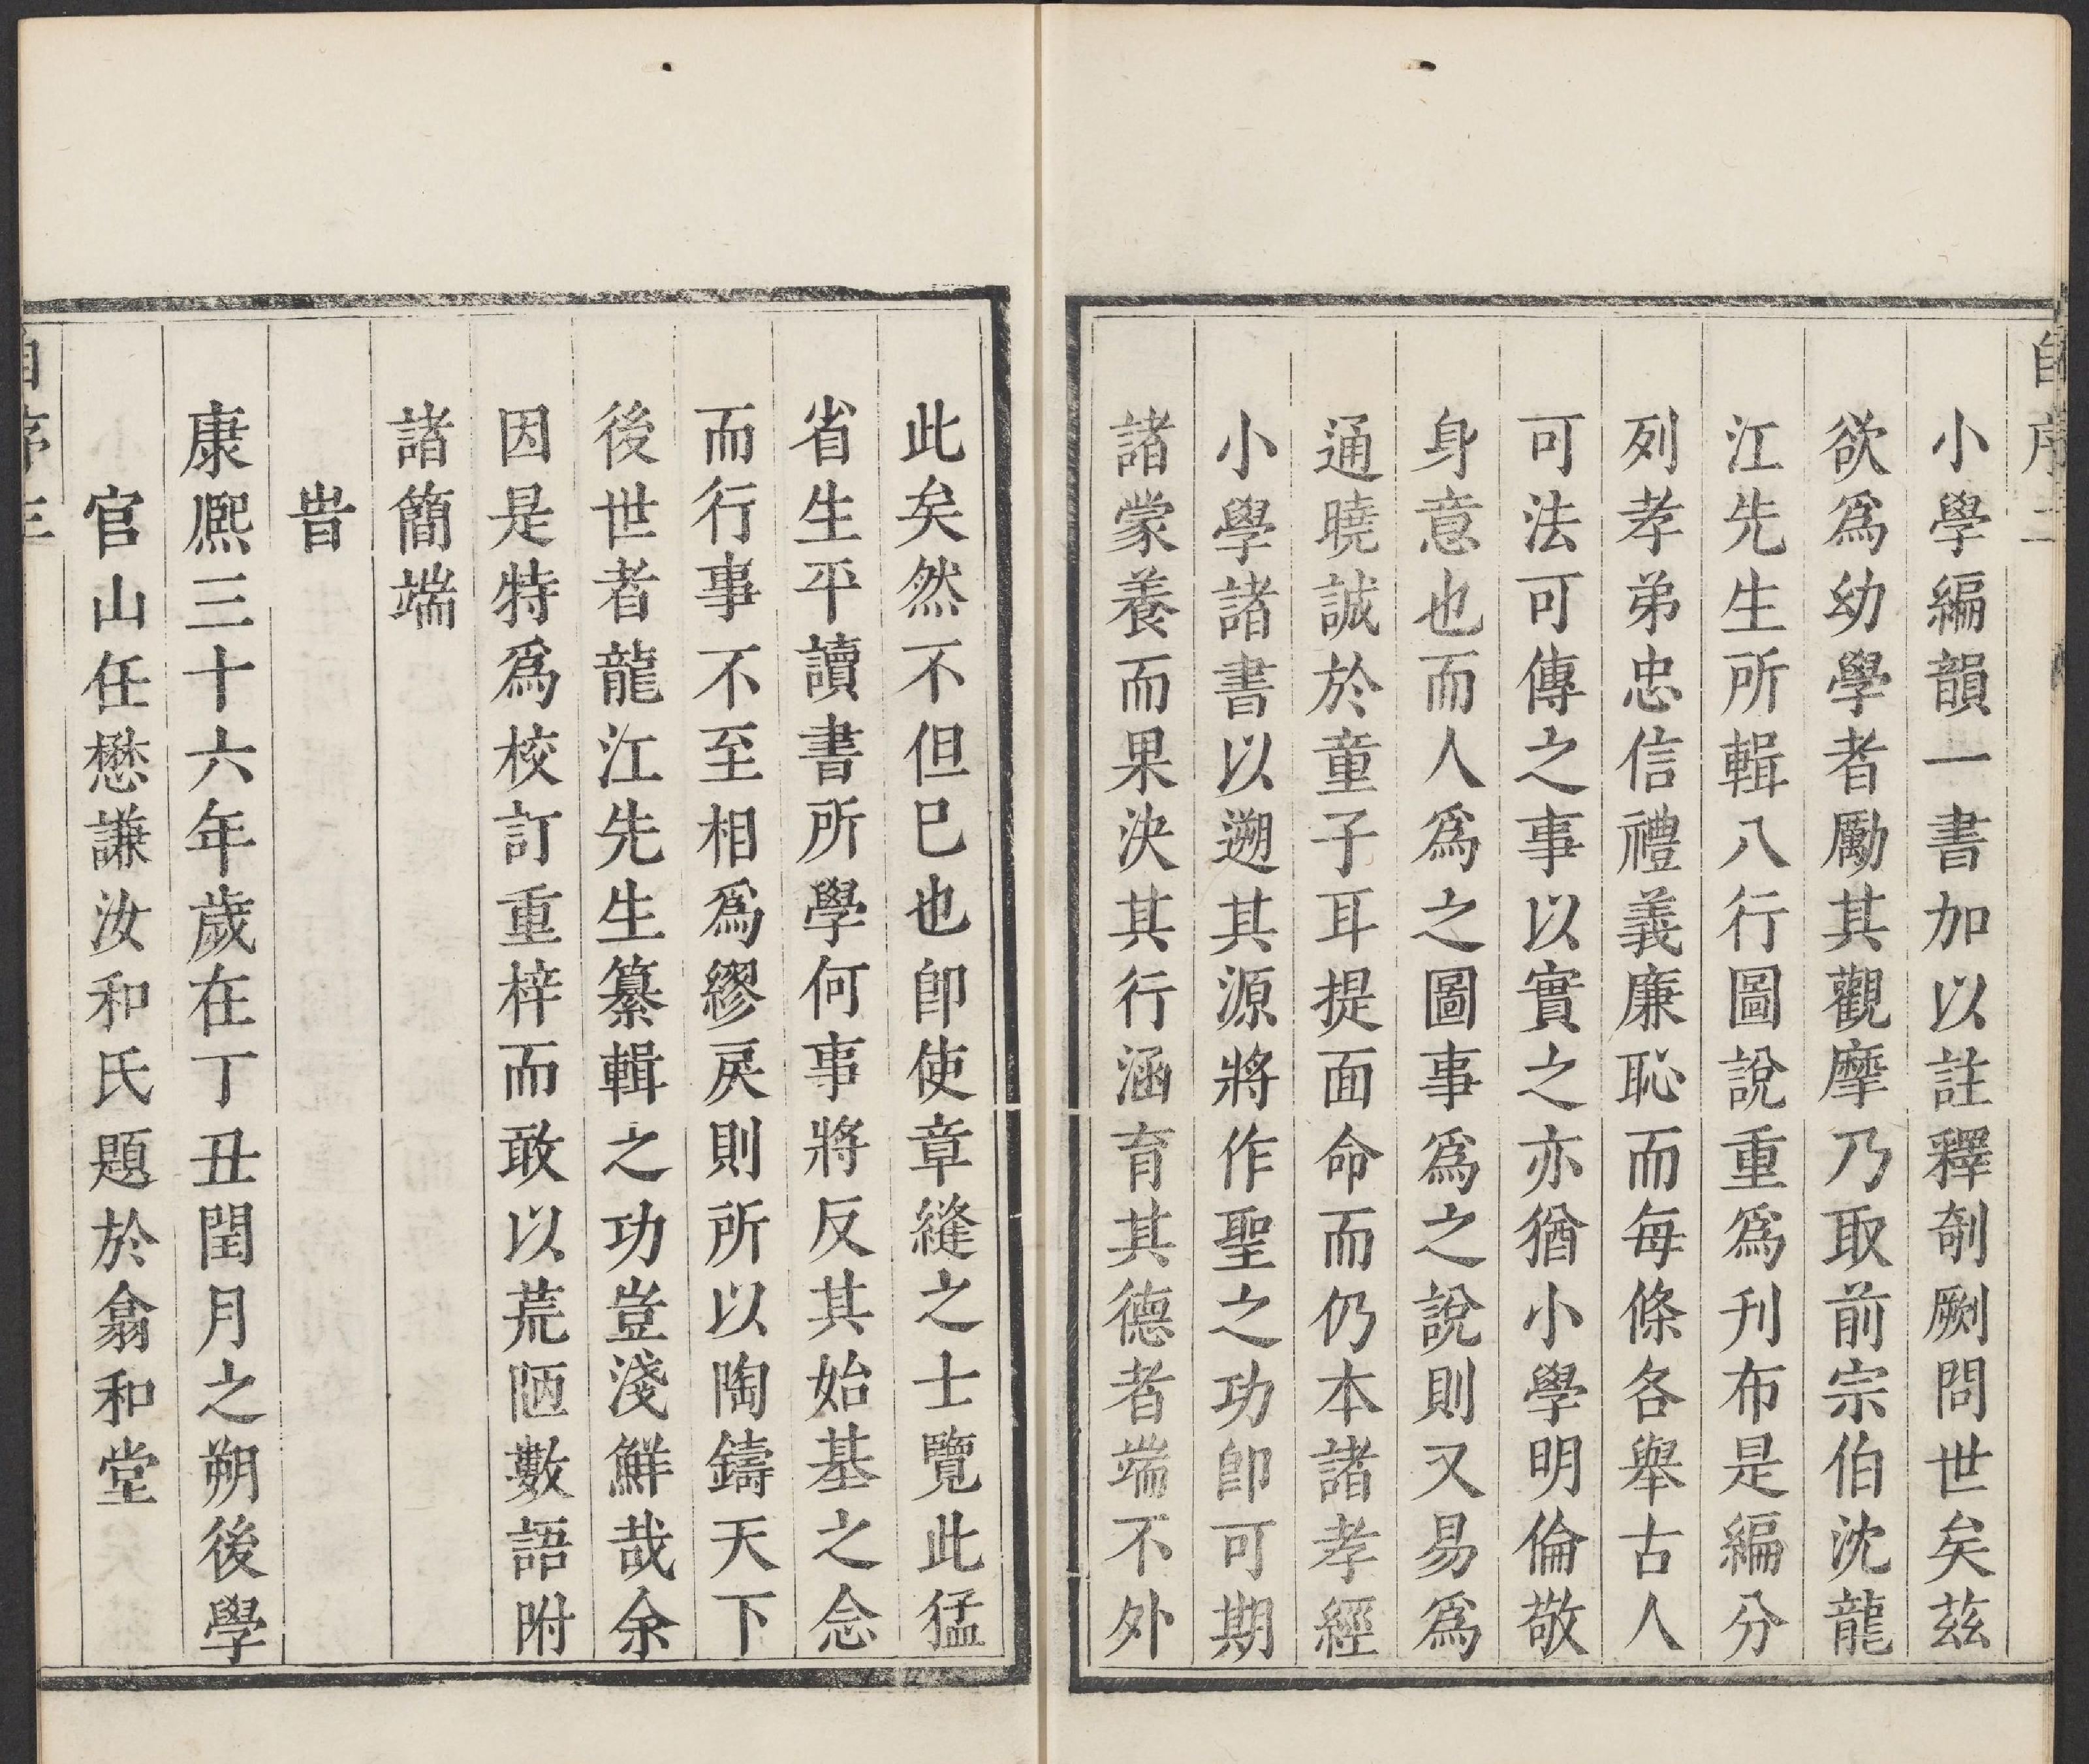 自序二
小學編韻一書加以註釋剞劂問世矣茲
欲爲幼學者勵其觀摩乃取前宗伯沈龍
江先生所輯八行圖說重爲刊布是編分
列孝弟忠信禮義廉恥而每條各舉古人
可法可傳之事以實之亦猶小學明倫敬
身意也而人爲之圖事爲之說則又易爲
通曉誠於童子耳提面命而仍本諸孝經
小學諸書以遡其源將作聖之功卽可期
諸蒙養而果決其行涵育其德者端不外
此矣然不但巳也卽使章縫之士覽此猛
省生平讀書所學何事將反其始基之念
而行事不至相爲繆戾則所以陶鑄天下
後世者龍江先生纂輯之功豈淺鮮哉余
因是特爲校訂重梓而敢以荒陋數語附
諸簡端
旹
康熈三十六年歲在丁丑閏月之朔後學
官山任懋謙汝和氏題於翕和堂
自序三